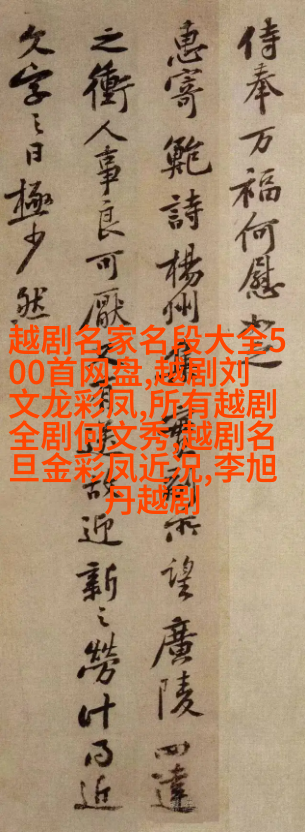 侍奉万福何慰
惠寄鮑詩楊州集 望廣陵四達
之衝人事良可厭又有 迎新〻勞計
字〻日極少然
越剧名家名段大全5
00首网盘,越剧刘
文龙彩凤,所有越剧
全剧何文秀,越剧名
旦金彩凤近况,李旭
丹越剧